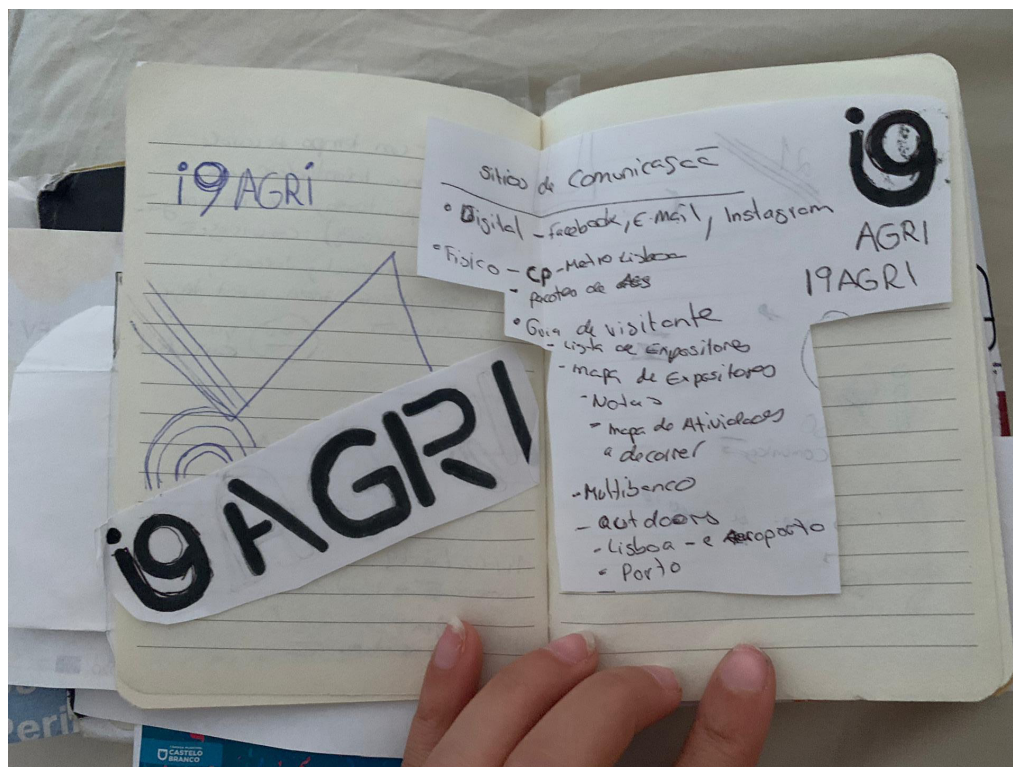 i9AGRI
i9AGRI
i9
AGRI
I9AGRI
Sitios de Comunicação
• Digital - facebook, E-Mail, Instagram
• Fisico - CP - Metro Lisboa
- pacotes de
• Guia de visitante
- Lista de Expositores
- mapa de Expositores
- Notas
- mapa de Atividades
a decorrer
- Multibanco
- outdoors
- Lisboa - e Aeroporto
• Porto
CASTELO
BRANCO